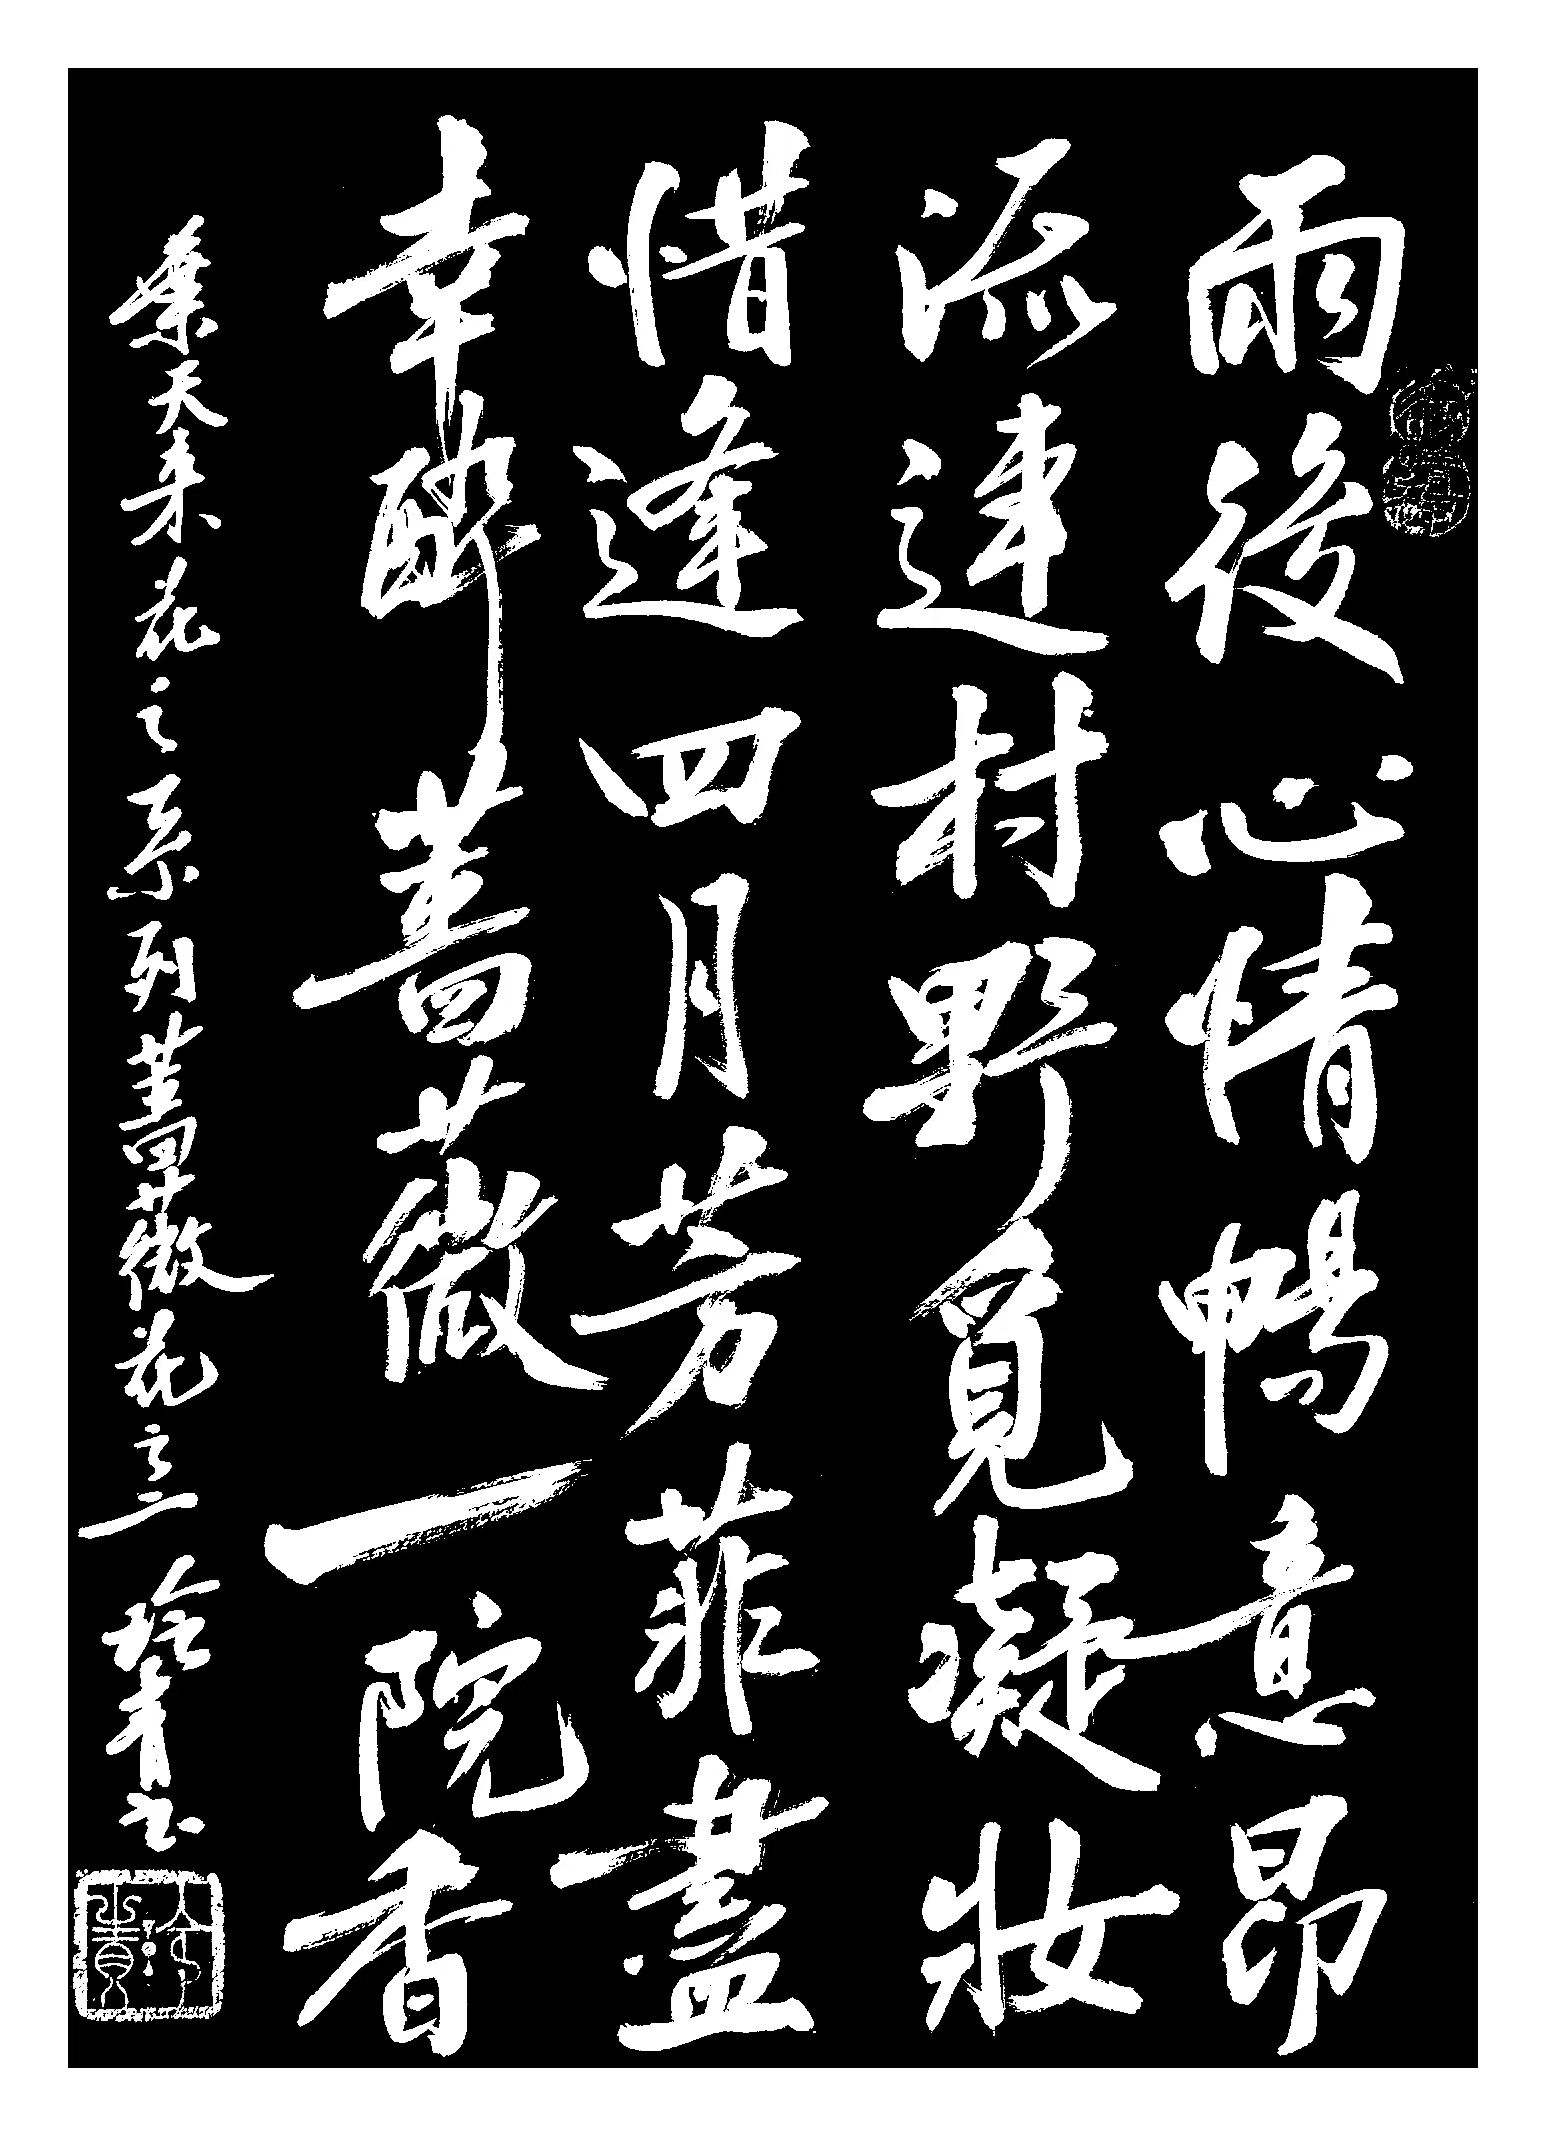 雨後心情暢意昂
流連村野覓凝妝
惜逢四月芳菲盡
幸醉薔薇一院香
葉天来花之系列薔薇花之二 玲青书